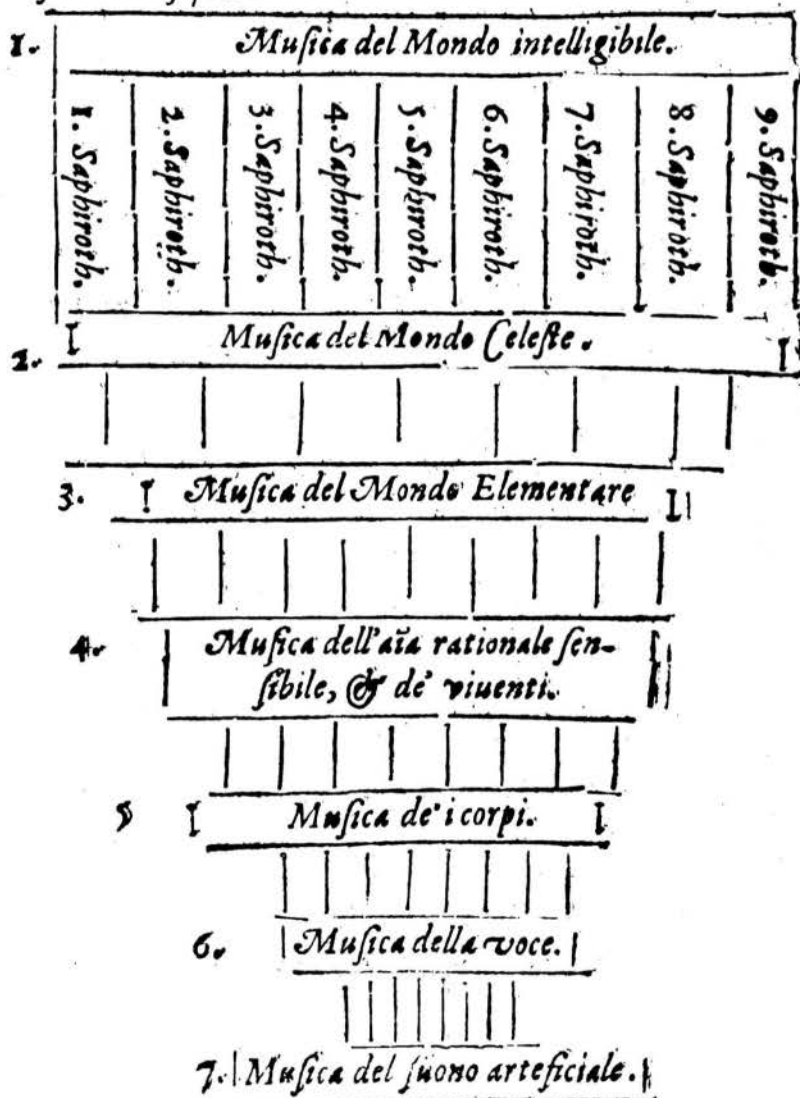 1. Muſica del Mondo intelligibile.
1. Saphiroth.
2. Saphiroth.
3. Saphiroth.
4. Saphiroth.
5. Saphiroth.
6. Saphiroth.
7. Saphiroth.
8. Saphiroth.
9. Saphiroth.
2. Muſica del Mondo Celeſte.
3. Muſica del Mondo Elementare
4. Muſica dell'aĩa rationale ſen-
ſibile, & de' viuenti.
5 Muſica de' i corpi.
6. Muſica della voce.
7. Muſica del ſuono arteficiale.